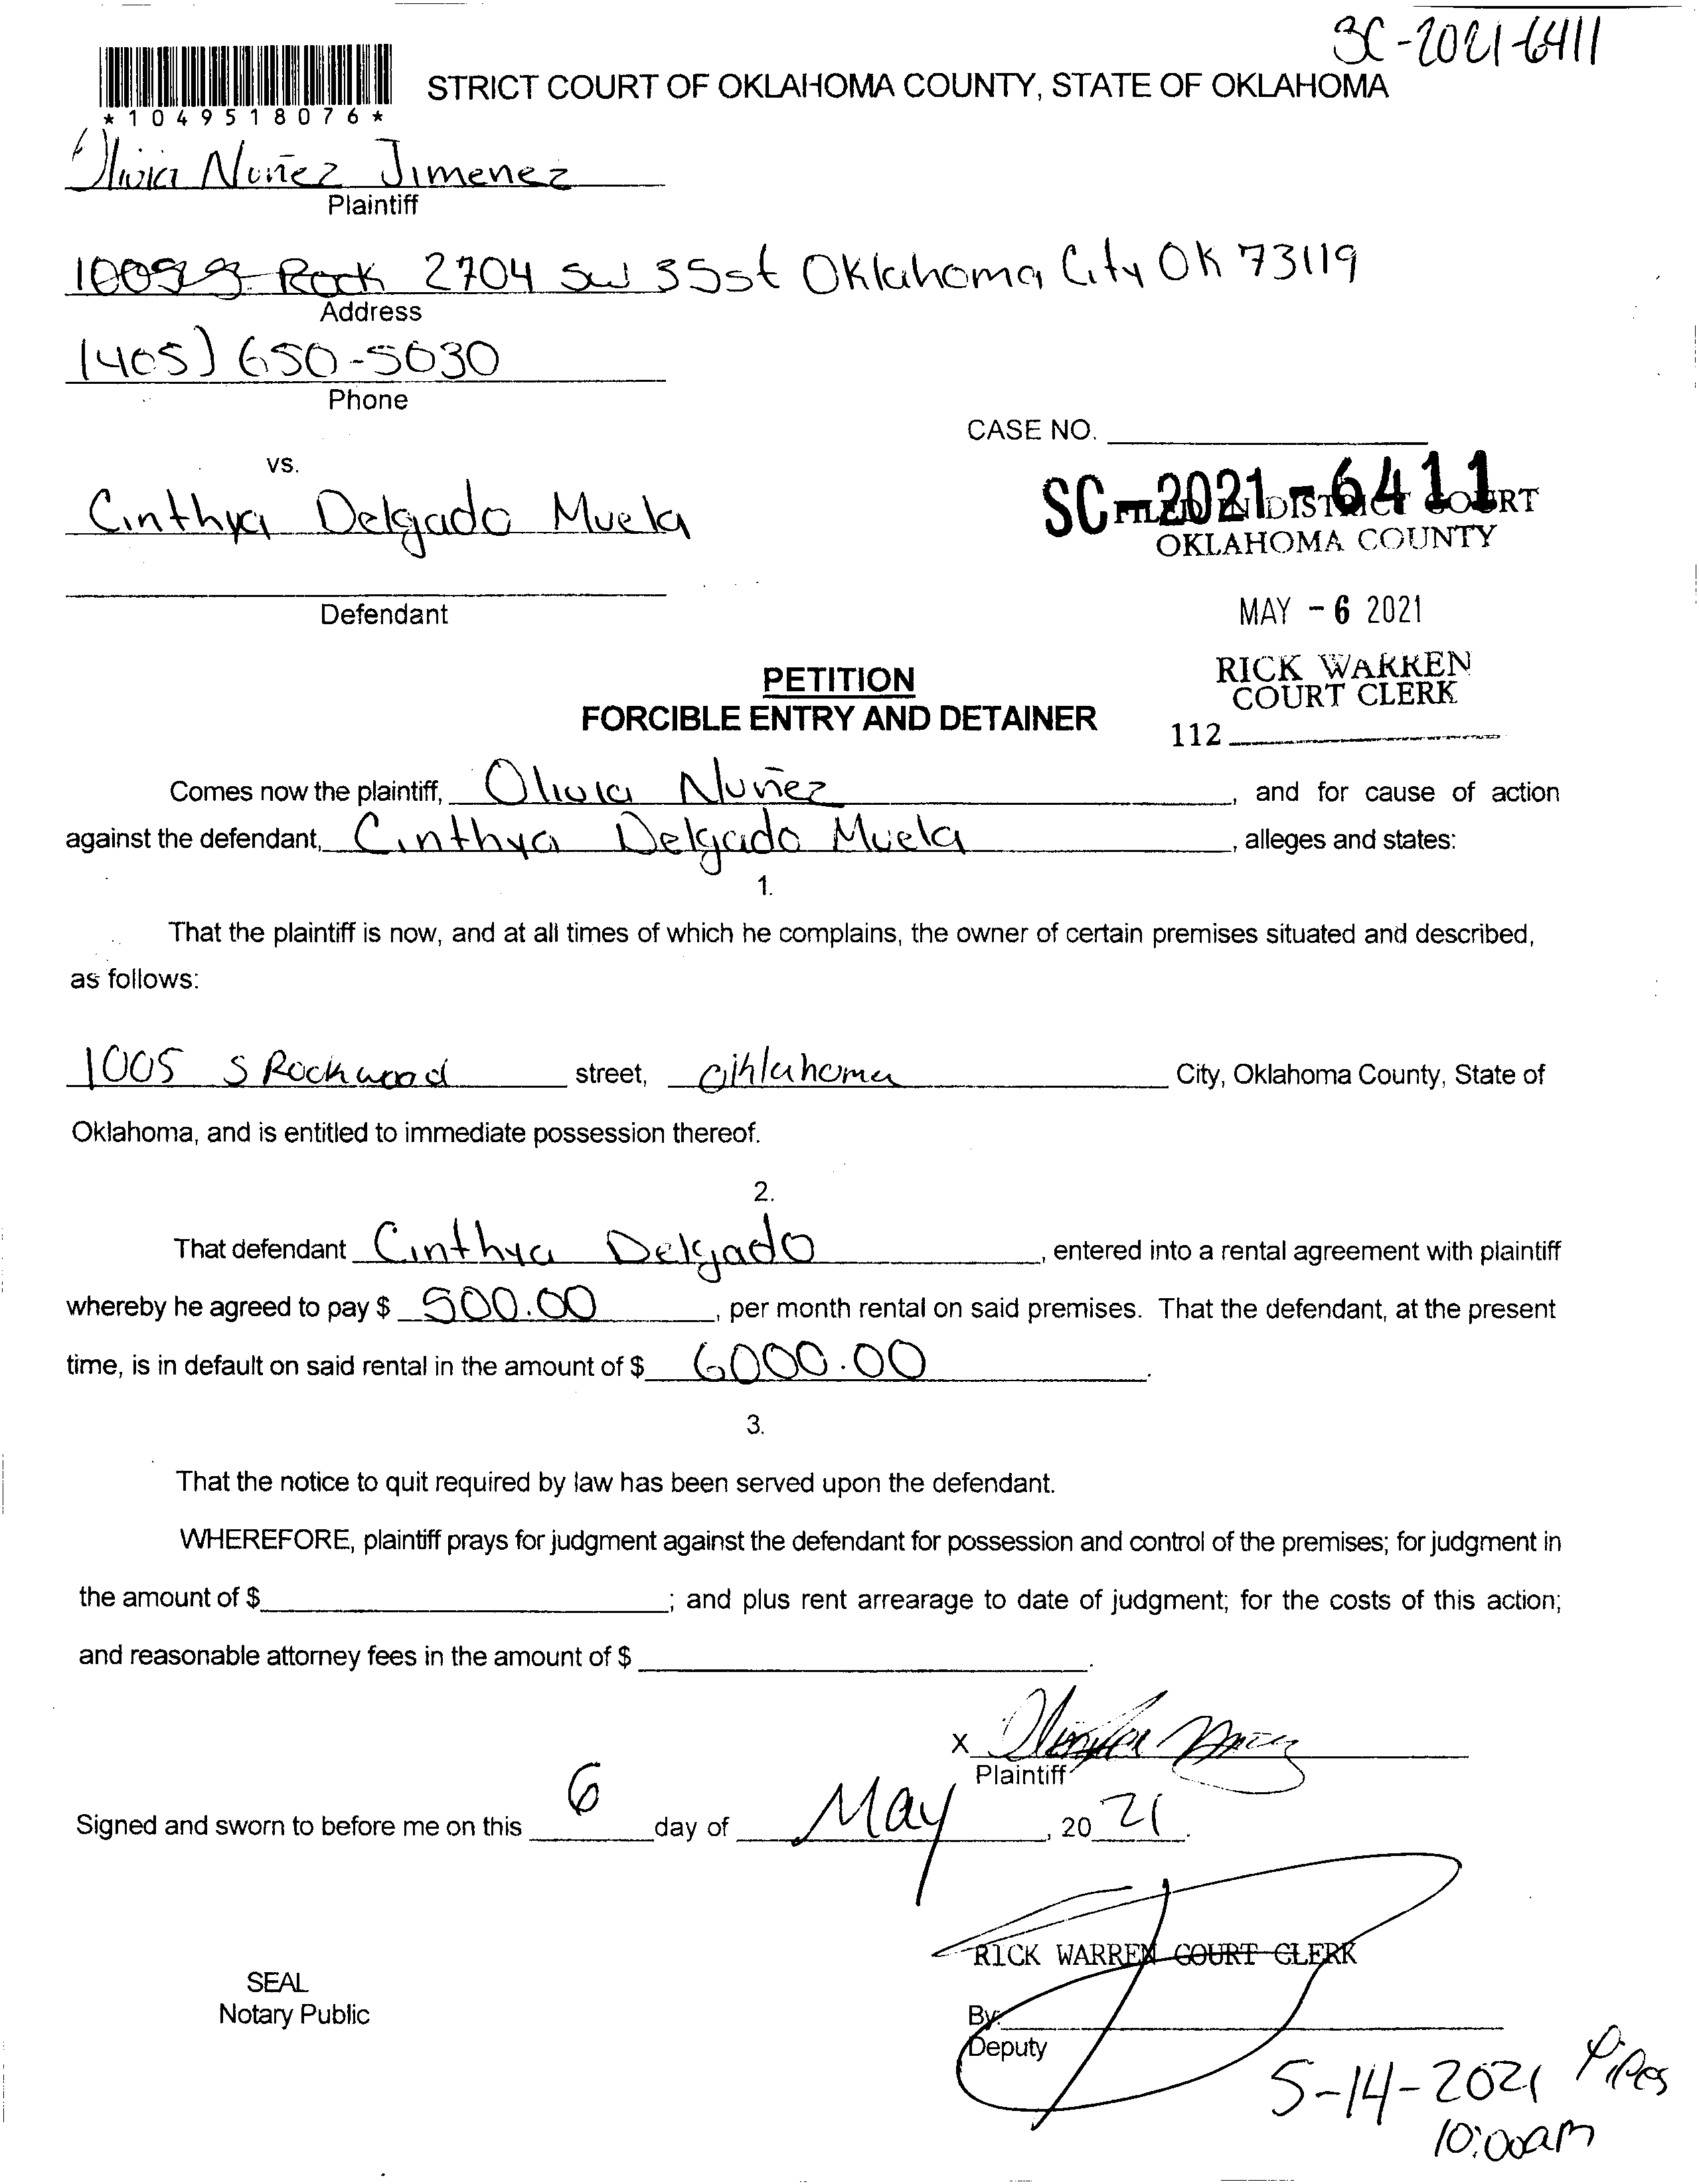 SC-2021-6411
STRICT COURT OF OKLAHOMA COUNTY, STATE OF OKLAHOMA
*1049518076*
Olivia Nuñez Jimenez
Plaintiff
Rock 2704 SW 35st Oklahoma City OK 73119
Address
(405) 650-5030
Phone
CASE NO.
vs.
SC-2021-6411
Cinthya Delgado Muela
FILED IN DISTRICT COURT
OKLAHOMA COUNTY
Defendant
MAY - 6 2021
PETITION
RICK WARREN
COURT CLERK
FORCIBLE ENTRY AND DETAINER
112
Comes now the plaintiff, Olivia Nuñez, and for cause of action
against the defendant, Cinthya Delgado Muela, alleges and states:
1.
That the plaintiff is now, and at all times of which he complains, the owner of certain premises situated and described,
as follows:
1005 S Rockwood street, Oklahoma City, Oklahoma County, State of
Oklahoma, and is entitled to immediate possession thereof.
2.
That defendant Cinthya Delgado, entered into a rental agreement with plaintiff
whereby he agreed to pay $ 500.00, per month rental on said premises. That the defendant, at the present
time, is in default on said rental in the amount of $ 6000.00.
3.
That the notice to quit required by law has been served upon the defendant.
WHEREFORE, plaintiff prays for judgment against the defendant for possession and control of the premises; for judgment in
the amount of $ ; and plus rent arrearage to date of judgment; for the costs of this action;
and reasonable attorney fees in the amount of $ .
x
Plaintiff
Signed and sworn to before me on this 6 day of May, 2021.
RICK WARREN COURT CLERK
SEAL
Notary Public
By:
Deputy
5-14-2021 Pipes
10:00am